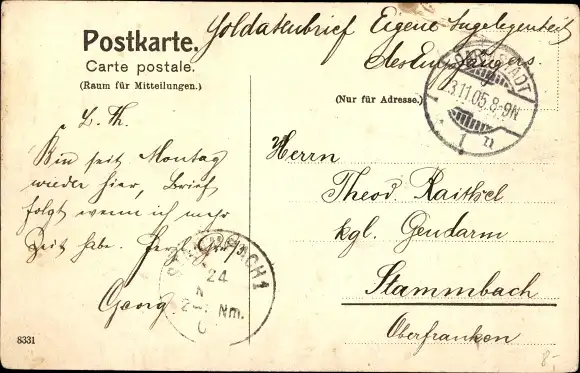 Soldatenbrief Eigene Angelegenheit
des Empfängers
Postkarte.
Carte postale.
(Raum für Mitteilungen.)
(Nur für Adresse.)
DARMSTADT
23.11.05.8-9N
1 n
L. Th.
Bin seit Montag
wieder hier, Brief
folgt wenn ich mehr
Zeit habe.
Georg
Herrn
Theod. Raithel
kgl. Gendarm
Stammbach
Oberfranken
BACH 1
24
N
2-
Nm.
8331
8.-